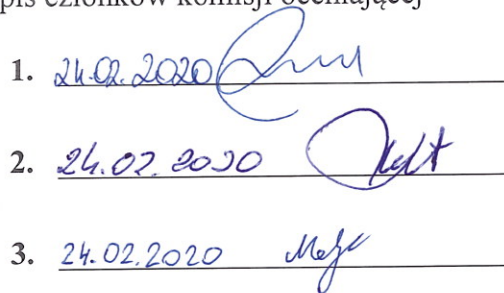 pis członków komisji oceniającej
1. 24.02.2020
2. 24.02.2020
3. 24.02.2020